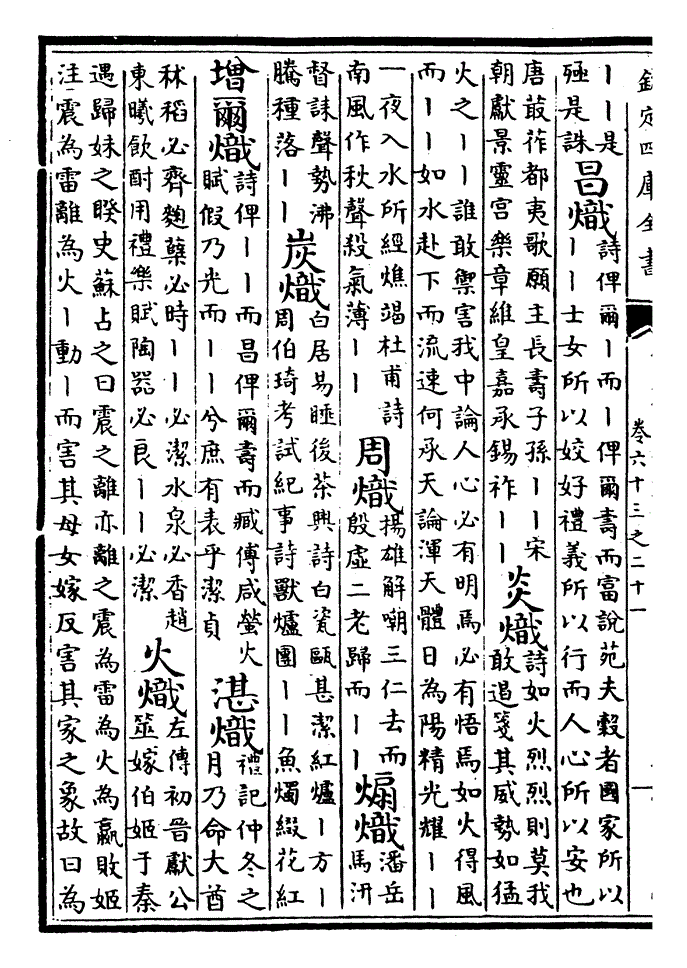 欽定四庫全書
卷六十三之二十一
｜｜是
殛是誅
昌熾
詩俾爾｜而｜俾爾壽而富說苑夫穀者國家所以
｜｜士女所以姣好禮義所以行而人心所以安也
唐菆莋都夷歌願主長壽子孫｜｜宋
朝獻景靈宮樂章維皇嘉承錫祚｜｜
炎熾
詩如火烈烈則莫我
敢遏箋其威勢如猛
火之｜｜誰敢禦害我中論人心必有明焉必有悟焉如火得風
而｜｜如水赴下而流速何承天論渾天體日為陽精光耀｜｜
一夜入水所經燋竭杜甫詩
南風作秋聲殺氣薄｜｜
周熾
揚雄解嘲三仁去而
殷虛二老歸而｜｜
煽熾
潘岳
馬汧
督誄聲勢沸
騰種落｜｜
炭熾
白居易睡後茶興詩白瓷甌甚潔紅爐｜方｜
周伯琦考試紀事詩獸爐團｜｜魚燭綴花紅
增爾熾
詩俾｜｜而昌俾爾壽而臧傅咸螢火
賦假乃光而｜｜兮庶有表乎潔貞
湛熾
禮記仲冬之
月乃命大酋
秫稻必齊麴櫱必時｜｜必潔水泉必香趙
東曦飲酎用禮樂賦陶器必良｜｜必潔
火熾
左傳初晉獻公
筮嫁伯姬于秦
遇歸妹之睽史蘇占之曰震之離亦離之震為雷為火為嬴敗姬
注震為雷離為火｜動｜而害其母女嫁反害其家之象故曰為